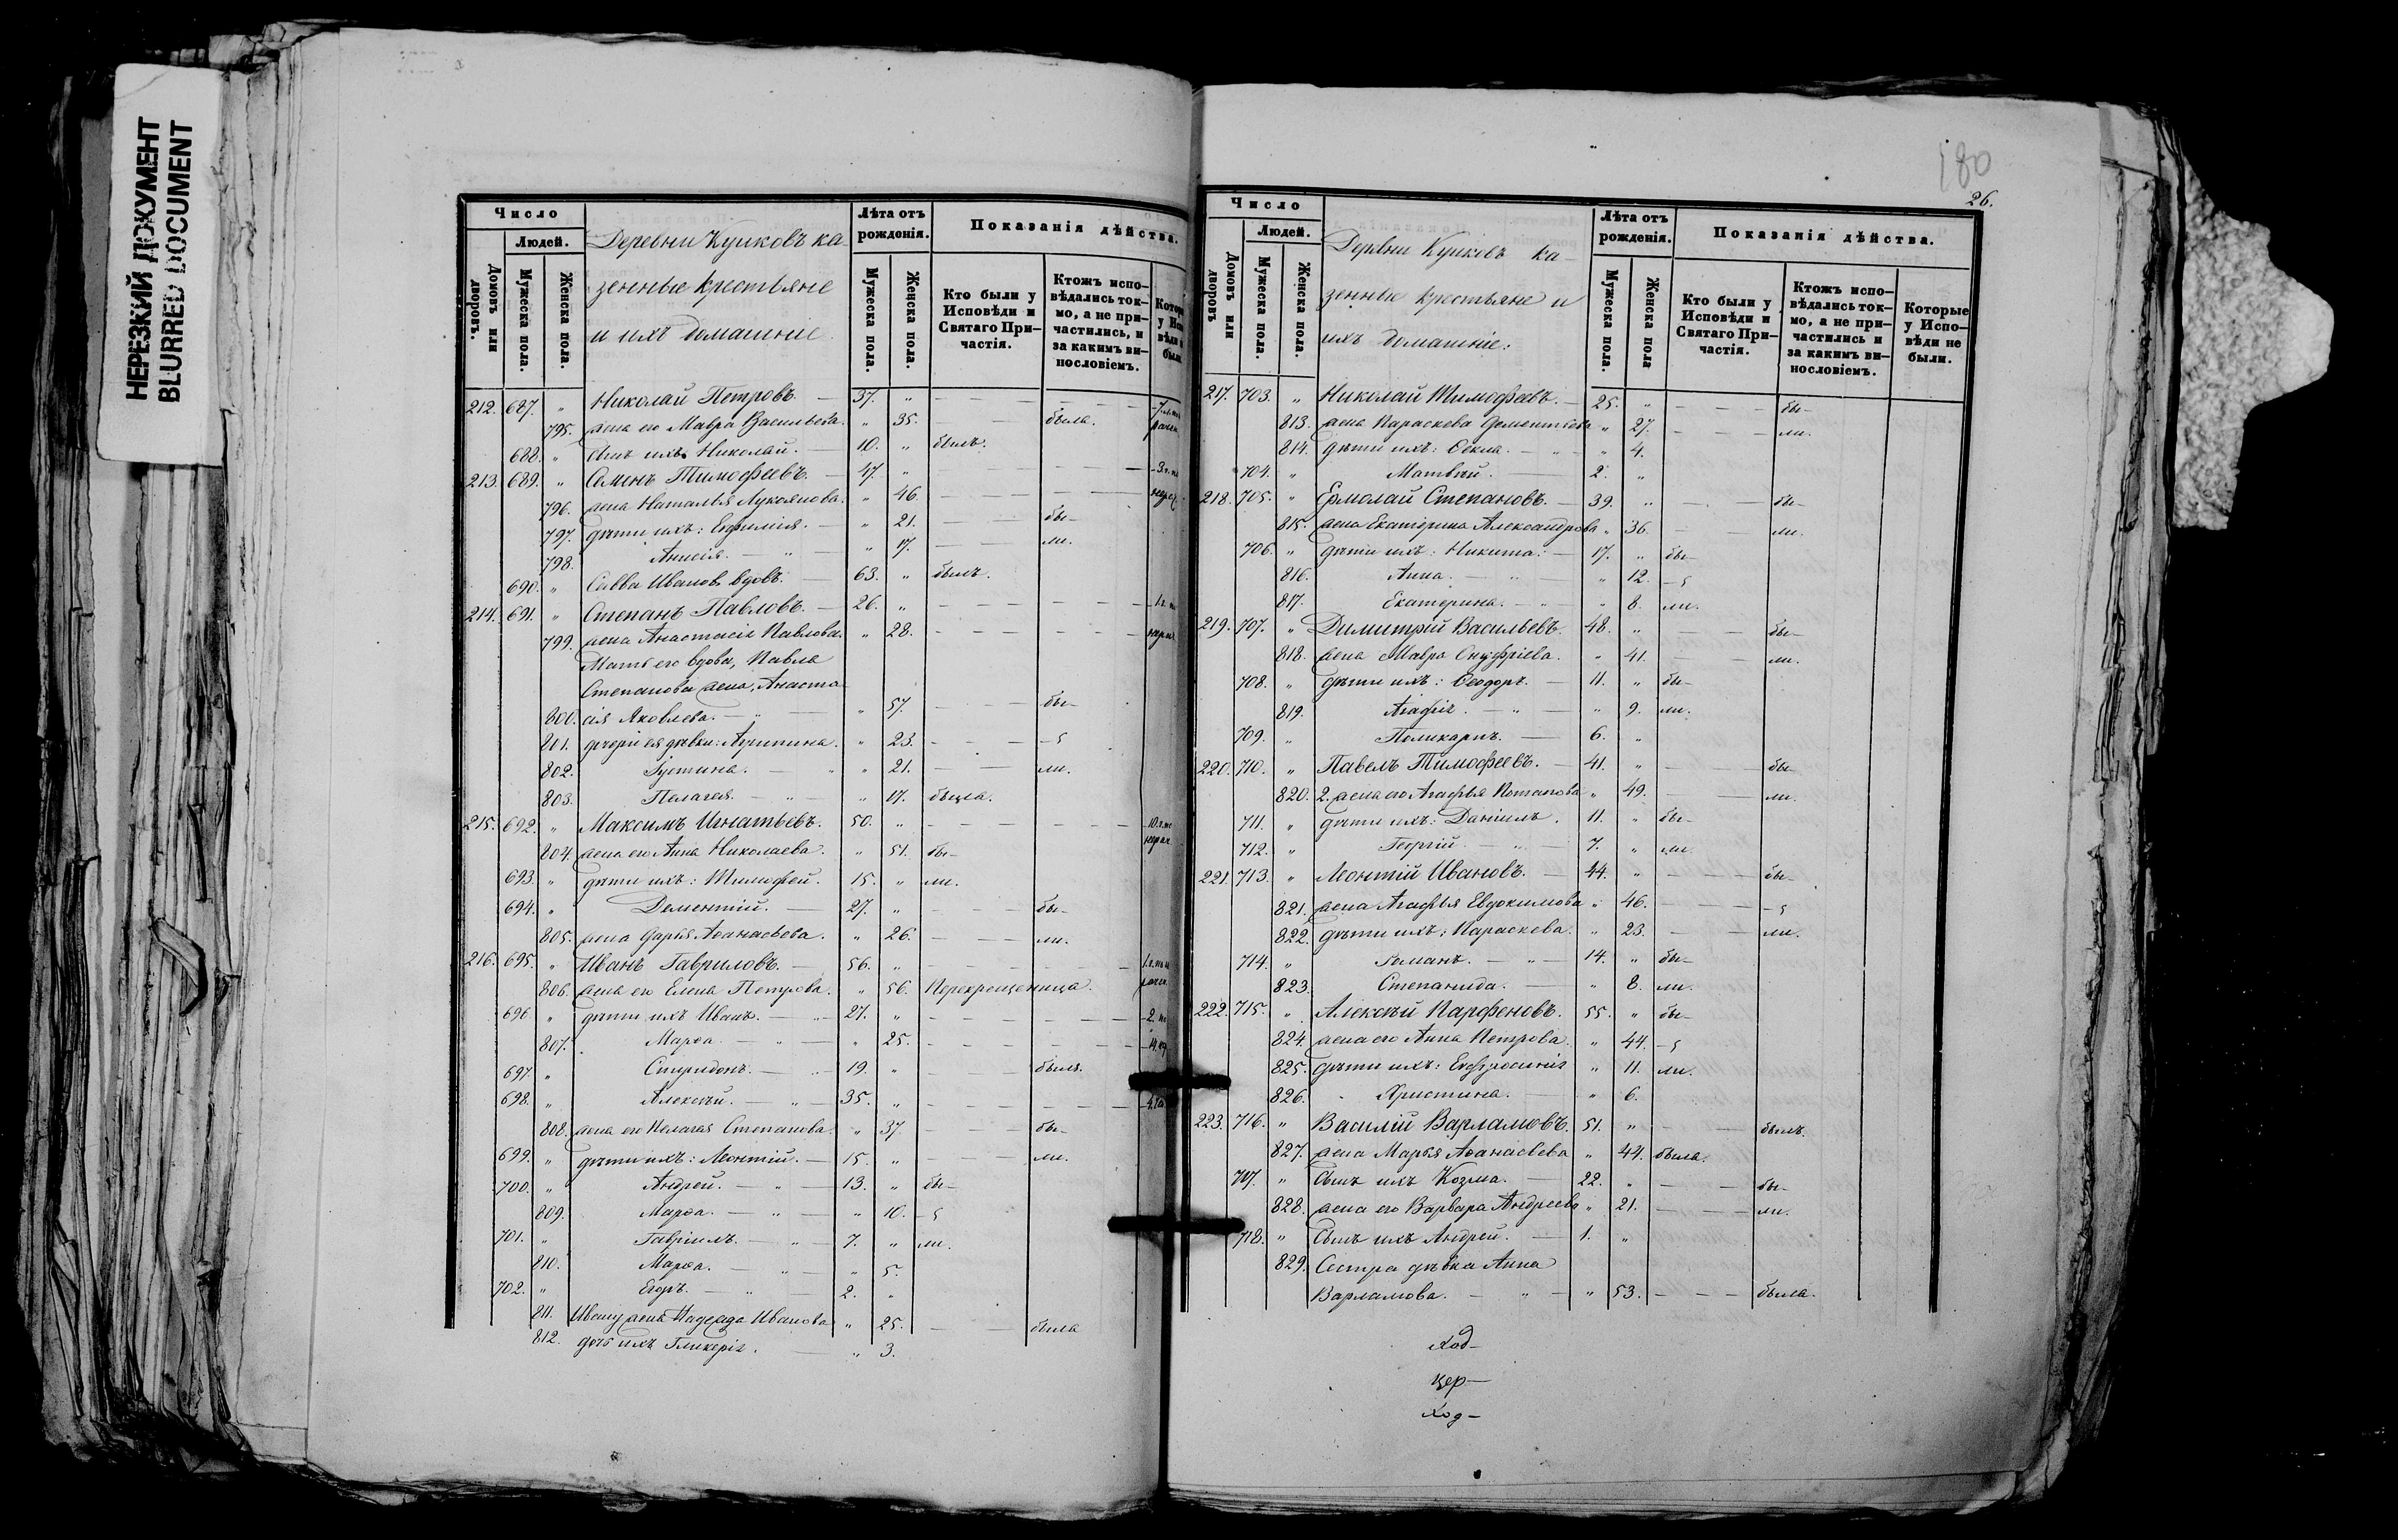 НЕРЕЗКИЙ ДОКУМЕНТ
BLURRED DOCUMENT
Число
Людей.
Домовъ или дворовъ.
Мужеска пола.
Женска пола.
Деревни Кушковъ ка-
зенные крестьяне
и ихъ домашніе
Лѣта отъ рожденія.
Мужеска пола.
Женска пола.
Показанія дѣйства.
Кто были у Исповѣди и Святаго При-частія.
Ктожъ испо-вѣдались ток-мо, а не при-частились, и за какимъ ви-нословіемъ.
212. 687. " Николай Петровъ. — 37. "
795. жена его Мавра Васильева. " 35. — — была.
688. " Сынъ ихъ Николай. — 10. " былъ.
213. 689. " Семенъ Тимофеевъ. — 47. "
796. жена Наталья Лукоянова. " 46. — —
797. дѣти ихъ: Евфимія. — " 21. — — бы-
798. Анисія. — " — " 17. — — ли.
690. " Савва Иванов вдовъ. — 63. " былъ.
214. 691. " Степанъ Павловъ. — 26. "
799. жена Анастасія Павлова. " 28. — —
Мать его вдова, Павла
Степанова жена, Анаста-
800. сія Яковлева. — " — " 57. — — бы-
801. дочери ея дѣвки: Агрипина. " 23. — — -
802. Іустина. — " 21. — — ли.
803. Пелагея. — " — " 17. была.
215. 692. " Максимъ Игнатьевъ. 50. "
804. жена его Анна Николаева. " 51. бы-
693. " дѣти ихъ: Тимофей. 15. " ли.
694. " Дементій. — 27. " — — бы-
805. жена Дарья Аѳанасьева. " 26. — — ли.
216. 695. " Иванъ Гавриловъ. — 56. "
806. жена его Елена Петрова. " 56. Перекрещеница.
696. " дѣти ихъ Иванъ. — " 27. "
807. Марѳа. — " — " 25. — —
697. " Спиридонъ. — " 19. " — — былъ.
698. " Алексѣй. — " — 35. "
808. жена его Пелагея Степанова. " 37. — — бы-
699. " дѣти ихъ: Леонтій. — 15. " — — ли.
700. " Андрей. — " — 13. " бы-
809. Марѳа. — " — " 10. -
701. " Гавріилъ. — " — 7. " ли.
810. Марѳа. — " — " 5.
702. " Егоръ. — " — 2. "
811. Ивану жена Надежда Иванова " 25. — — была
812. дочь ихъ Гликерія. — " 3.
180
26.
Число
Людей.
Домовъ или дворовъ
Мужеска пола.
Женска пола.
Деревни Кушковъ ка-
зенные крестьяне и
ихъ домашніе:
Лѣта отъ рожденія.
Мужеска пола.
Женска пола
Показанія дѣйства.
Кто были у Исповѣди и Святаго При-частія.
Ктожъ испо-вѣдались ток-мо, а не при-частились и за какимъ ви-нословіемъ.
Которые у Испо-вѣди не были.
217. 703. " Николай Тимофеевъ. — 25. " — — бы-
813. жена Параскева Дементьева " 27. — — ли.
814. дѣти ихъ: Ѳекла. — " — " 4.
704. " Матвѣй. — 2. "
218. 705. " Ермолай Степановъ. — 39. " — бы-
815. жена Екатерина Александрова " 36. — ли.
706. " дѣти ихъ: Никита. — 17. " бы-
816. Анна. — " " 12. -
817. Екатерина. — " — " 8. ли.
219. 707. " Димитрій Васильевъ. 48. " — — бы-
818. жена Мавра Онуфріева. " 41. — — ли.
708. " дѣти ихъ: Ѳеодоръ. — 11. " бы-
819. Агафія. — " — " 9. ли.
709. " Поликарпъ. — 6. "
220. 710. " Павелъ Тимофеевъ. — 41. " — — бы-
820. 2. жена его Агафья Потапова " 49. — — ли.
711. " дѣти ихъ: Даніилъ. 11. " бы-
712. " Георгій. — " — 7. " ли.
221. 713. " Леонтій Ивановъ. — 44. " — — бы-
821. жена Агафья Евдокимова " 46. — — -
822. дѣти ихъ: Параскева. " 23. — — ли.
714. " Романъ. — " — 14. " бы-
823. Степанида. — " 8. ли.
222. 715. " Алексѣй Парфеновъ. 55. " бы-
824. жена его Анна Петрова. " 44. -
825. дѣти ихъ: Евфросинія " 11. ли.
826. Христина. — " 6.
223. 716. " Василій Варламовъ. 51. " — былъ.
827. жена Марья Аѳанасьева " 44. была.
717. " Сынъ ихъ Козма. — 22. " — — бы-
828. жена его Варвара Андреева " 21. — — ли.
718. " Сынъ ихъ Андрей. — 1. "
829. Сестра дѣвка Анна
Варламова. — " — " 53. — — была.